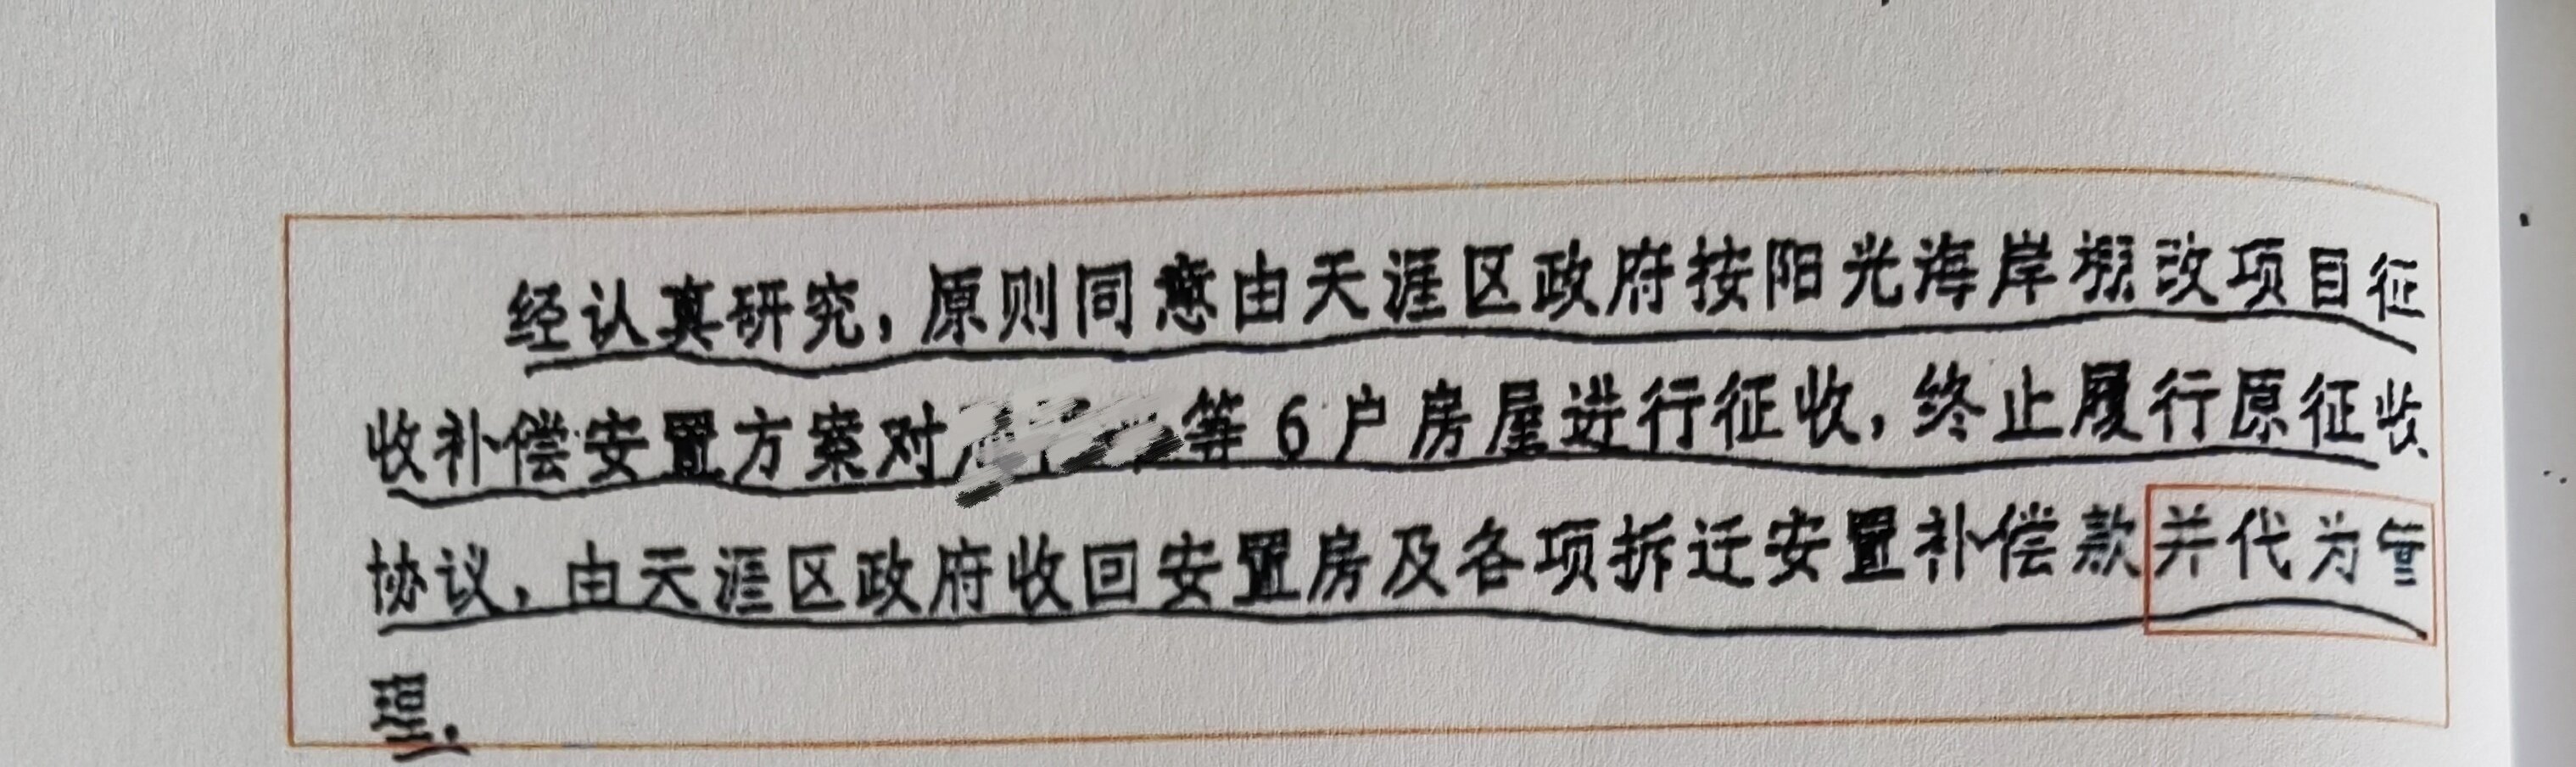 经认真研究，原则同意由天涯区政府按阳光海岸棚改项目征
收补偿安置方案对等6户房屋进行征收，终止履行原征收
协议，由天涯区政府收回安置房及各项拆迁安置补偿款并代为管
理.